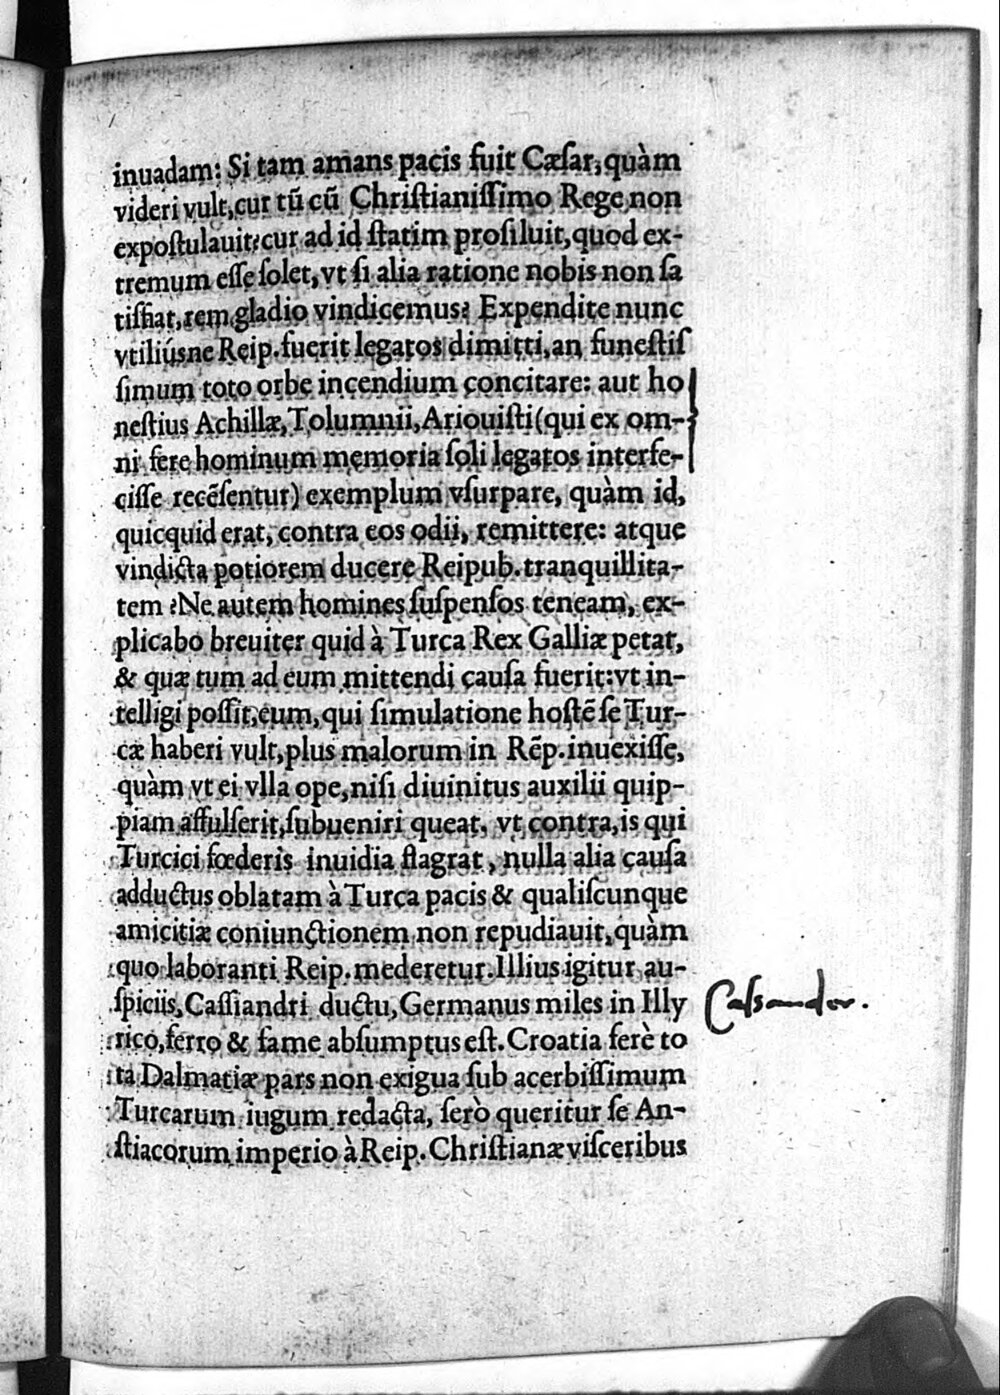 inuadam: Si tam amans pacis fuit Cæſar, quàm
videri vult, cur tū cū Chriſtianiſſimo Rege non
expoſtulauit? cur ad id ſtatim proſiluit, quod ex-
tremum eſſe ſolet, vt ſi alia ratione nobis non ſa
tisfiat, rem gladio vindicemus? Expendite nunc
vtiliúsne Reip. fuerit legatos dimitti, an funeſtiſ
ſimum toto orbe incendium concitare: aut ho
neſtius Achillæ, Tolumnii, Ariouiſti (qui ex om-
ni fere hominum memoria ſoli legatos interfe-
ciſſe recēſentur) exemplum vſurpare, quàm id,
quicquid erat, contra eos odii, remittere: atque
vindicta potiorem ducere Reipub. tranquillita-
tem? Ne autem homines ſuſpenſos teneam, ex-
plicabo breuiter quid à Turca Rex Galliæ petat,
& quæ tum ad eum mittendi cauſa fuerit: vt in-
telligi poſſit, eum, qui ſimulatione hoſtē ſe Tur-
cæ haberi vult, plus malorum in Rēp. inuexiſſe,
quàm vt ei vlla ope, niſi diuinitus auxilii quip-
piam affulſerit, ſubueniri queat, vt contra, is qui
Turcici fœderis inuidia flagrat, nulla alia cauſa
adductus oblatam à Turca pacis & qualiſcunque
amicitiæ coniunctionem non repudiauit, quàm
quo laboranti Reip. mederetur. Illius igitur au-
ſpiciis, Caſſiandri ductu, Germanus miles in Illy
Caſsander.
rico, ferro & fame abſumptus eſt. Croatia ferè to
ta Dalmatiæ pars non exigua ſub acerbiſſimum
Turcarum iugum redacta, ſerò queritur ſe An-
ſtiacorum imperio à Reip. Chriſtianæ viſceribus